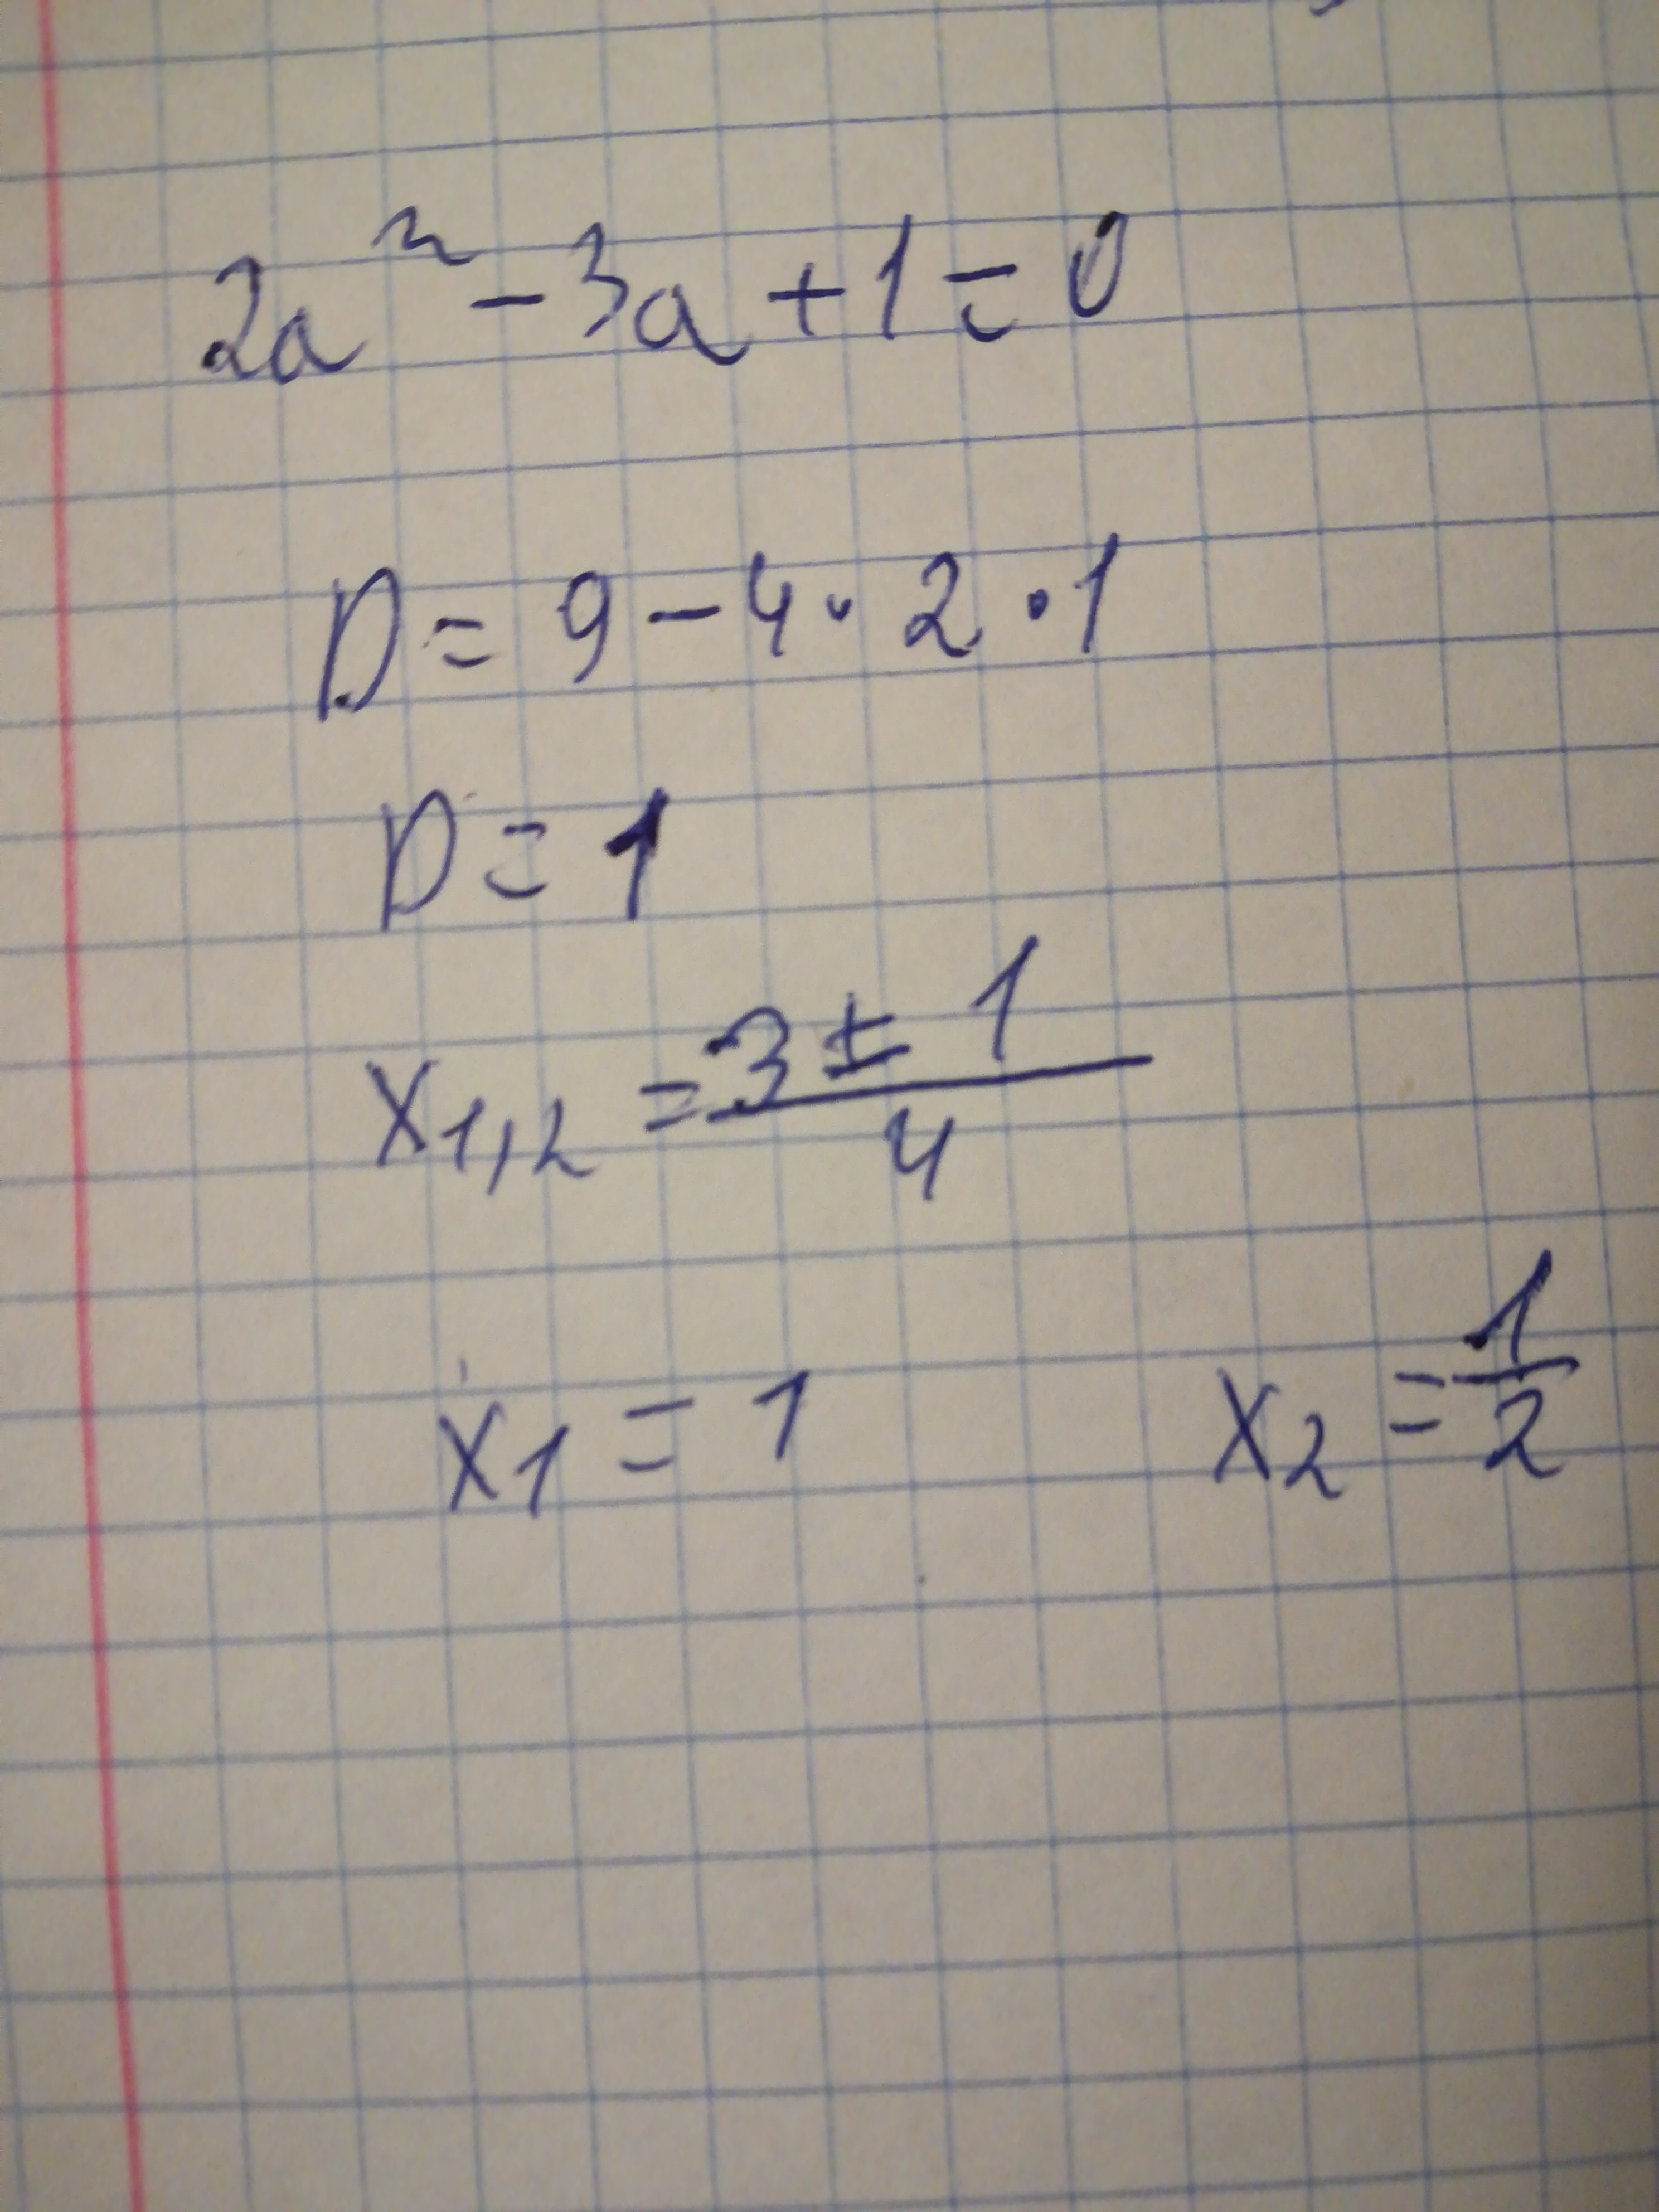 2a² - 3a + 1 = 0
D = 9 - 4 · 2 · 1
D = 1
x₁,₂ = (3 ± 1)/4
x₁ = 1 x₂ = 1/2